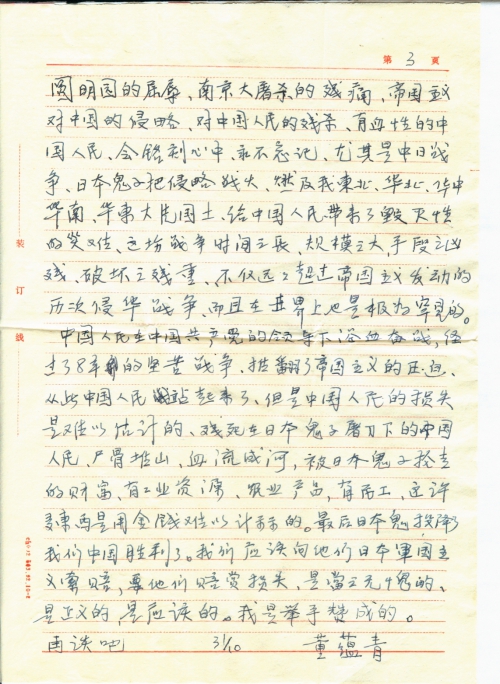 第 3 頁
圆明园的屈辱、南京大屠杀的残痛、帝国主义
对中国的侵略、对中国人民的残杀、有血性的中
国人民、会铭刻心中、永不忘记、尤其是中日战
争、日本鬼子把侵略战火、燃及我東北、华北、华中
华南、华東大片国土、给中国人民带来了毁灭性
的災难、这场战争时间之長、规模之大、手段之凶
残、破坏之残重、不仅远远超过帝国主义发动的
历次侵华战争、而且在世界上也是极为罕見的。
中国人民在中国共产党的领导下浴血奋战、经
过了8年的坚苦战争、推翻了帝国主义的压迫、
从此中国人民站起来了、但是中国人民的损失
是难以估计的、残死在日本鬼子屠刀下的中国
人民、尸骨堆山、血流成河、被日本鬼子抢走
的财富、有工业资源、农业产品、有劳工、这许
多東西是用金钱难以计示的。最后日本鬼投降了
我们中国胜利了。我们应该向他们日本軍国主
义索赔、要他们赔赏损失、是当之无愧的、
是正义的、是应该的。我是举手赞成的。
再谈吧 3/10 董蕴青
装
订
线